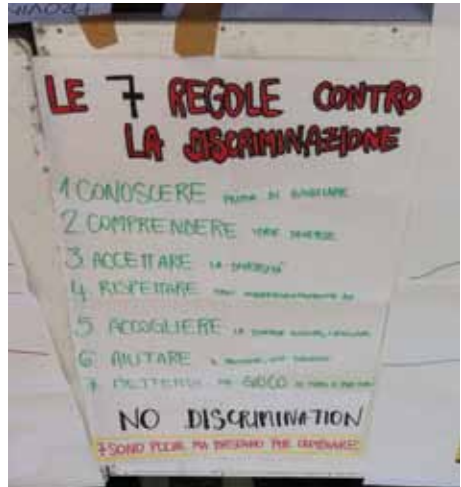 LE 7 REGOLE CONTRO
LA DISCRIMINAZIONE
1 CONOSCERE PRIMA DI GIUDICARE
2 COMPRENDERE IDEE DIVERSE
3 ACCETTARE LA DIVERSITÀ
4 RISPETTARE
5 ACCOGLIERE
6 AIUTARE
7 METTERSI IN GIOCO
NO DISCRIMINATION
7 SONO POCHE MA BASTANO PER CAMBIARE!